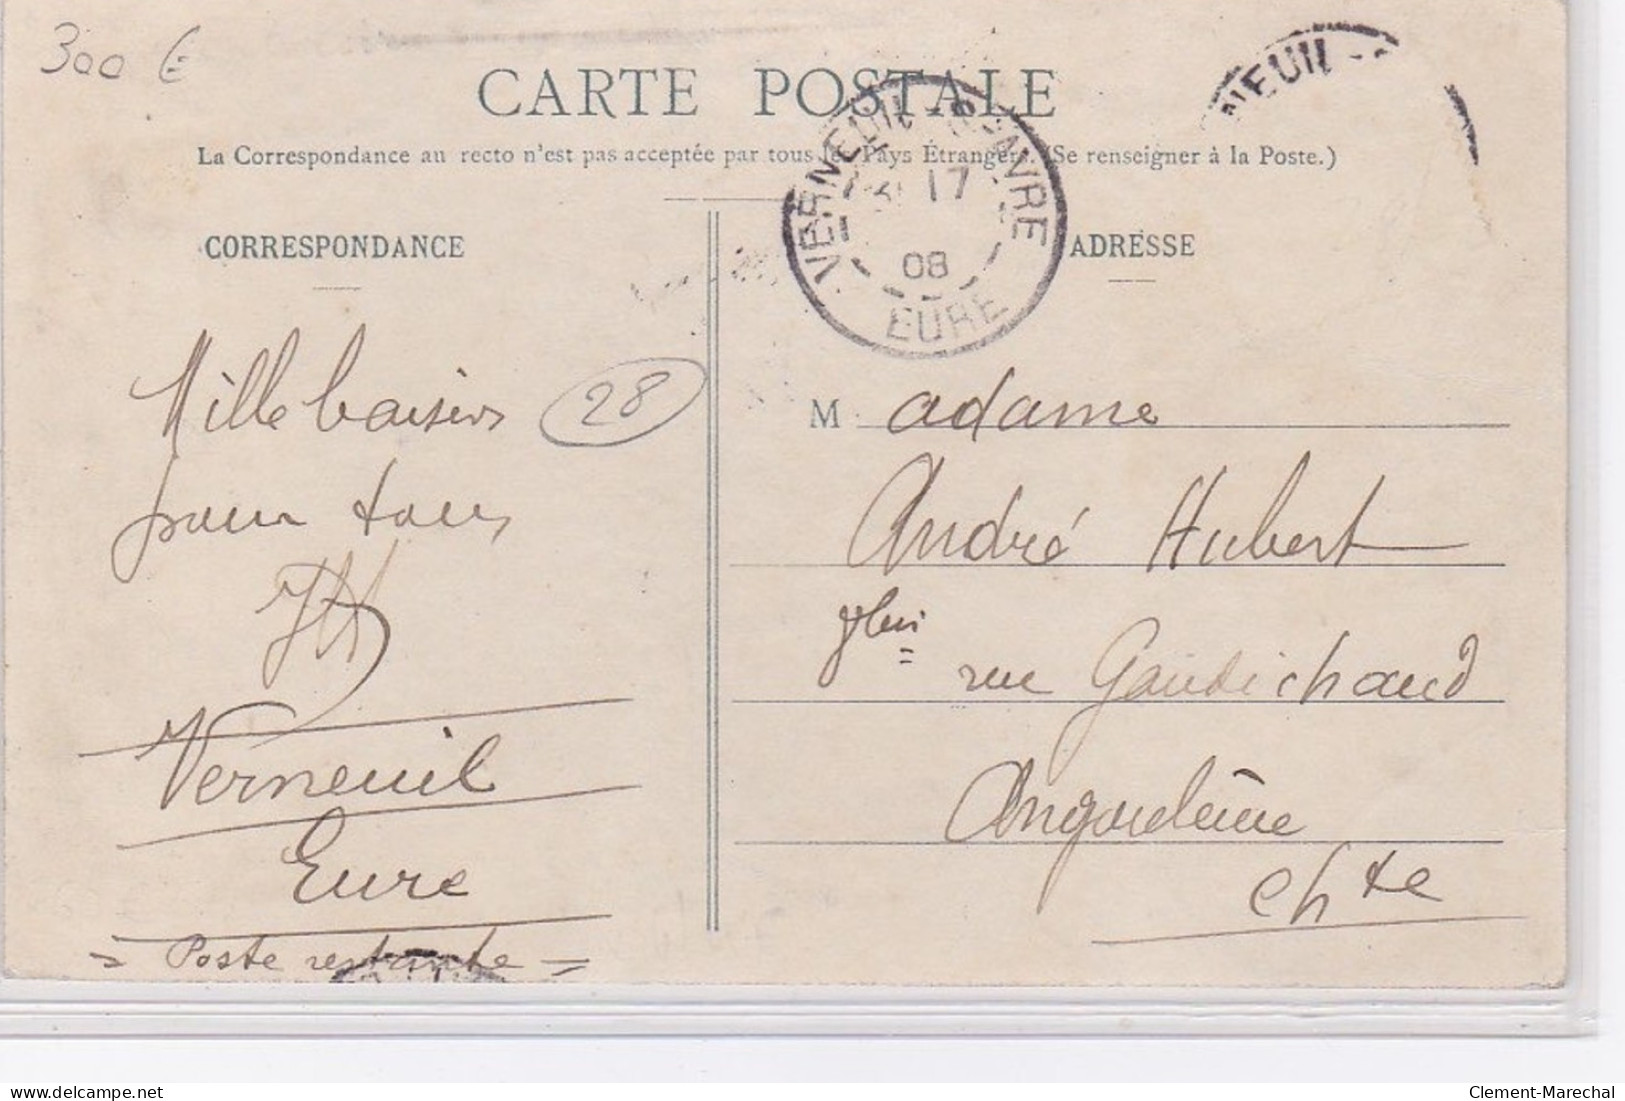 300 €
CARTE POSTALE
NEUIL -
La Correspondance au recto n'est pas acceptée par tous les Pays Étrangers. (Se renseigner à la Poste.)
VERNEUIL - S - AVRE
17
08
EURE
CORRESPONDANCE
ADRESSE
Mille baisers
28
pour tous
JH
Verneuil
Eure
= Poste restante =
M adame
André Hubert
rue Gaudichaud
Angoulême
Chte
www.delcampe.net
Clement-Marechal